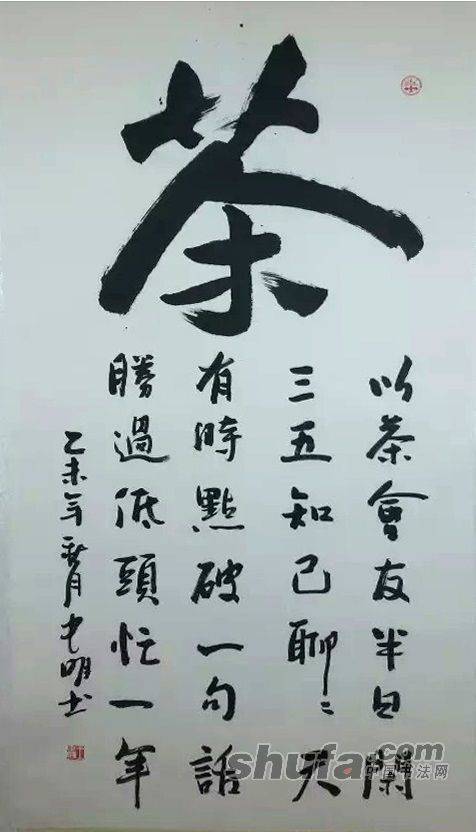 茶
以茶會友半日闌
三五知己聊〻天
有時點破一句話
勝過低頭忙一年
乙未年月明书
shufa.com
中国书法网